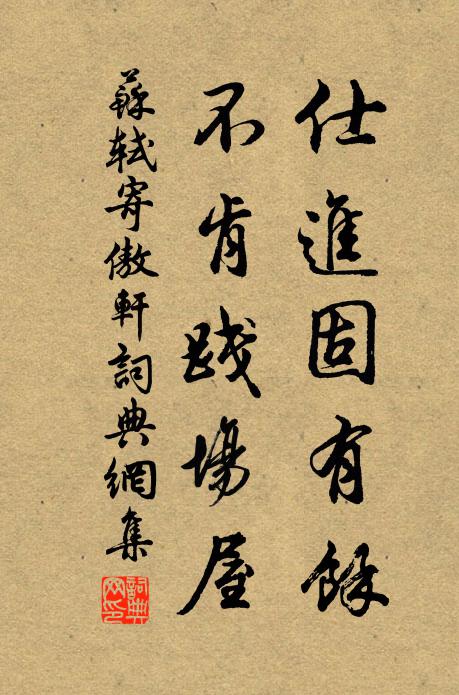 仕進固有餘
不肯踐場屋
蘇軾寄傲軒詞典網集
詞典网印